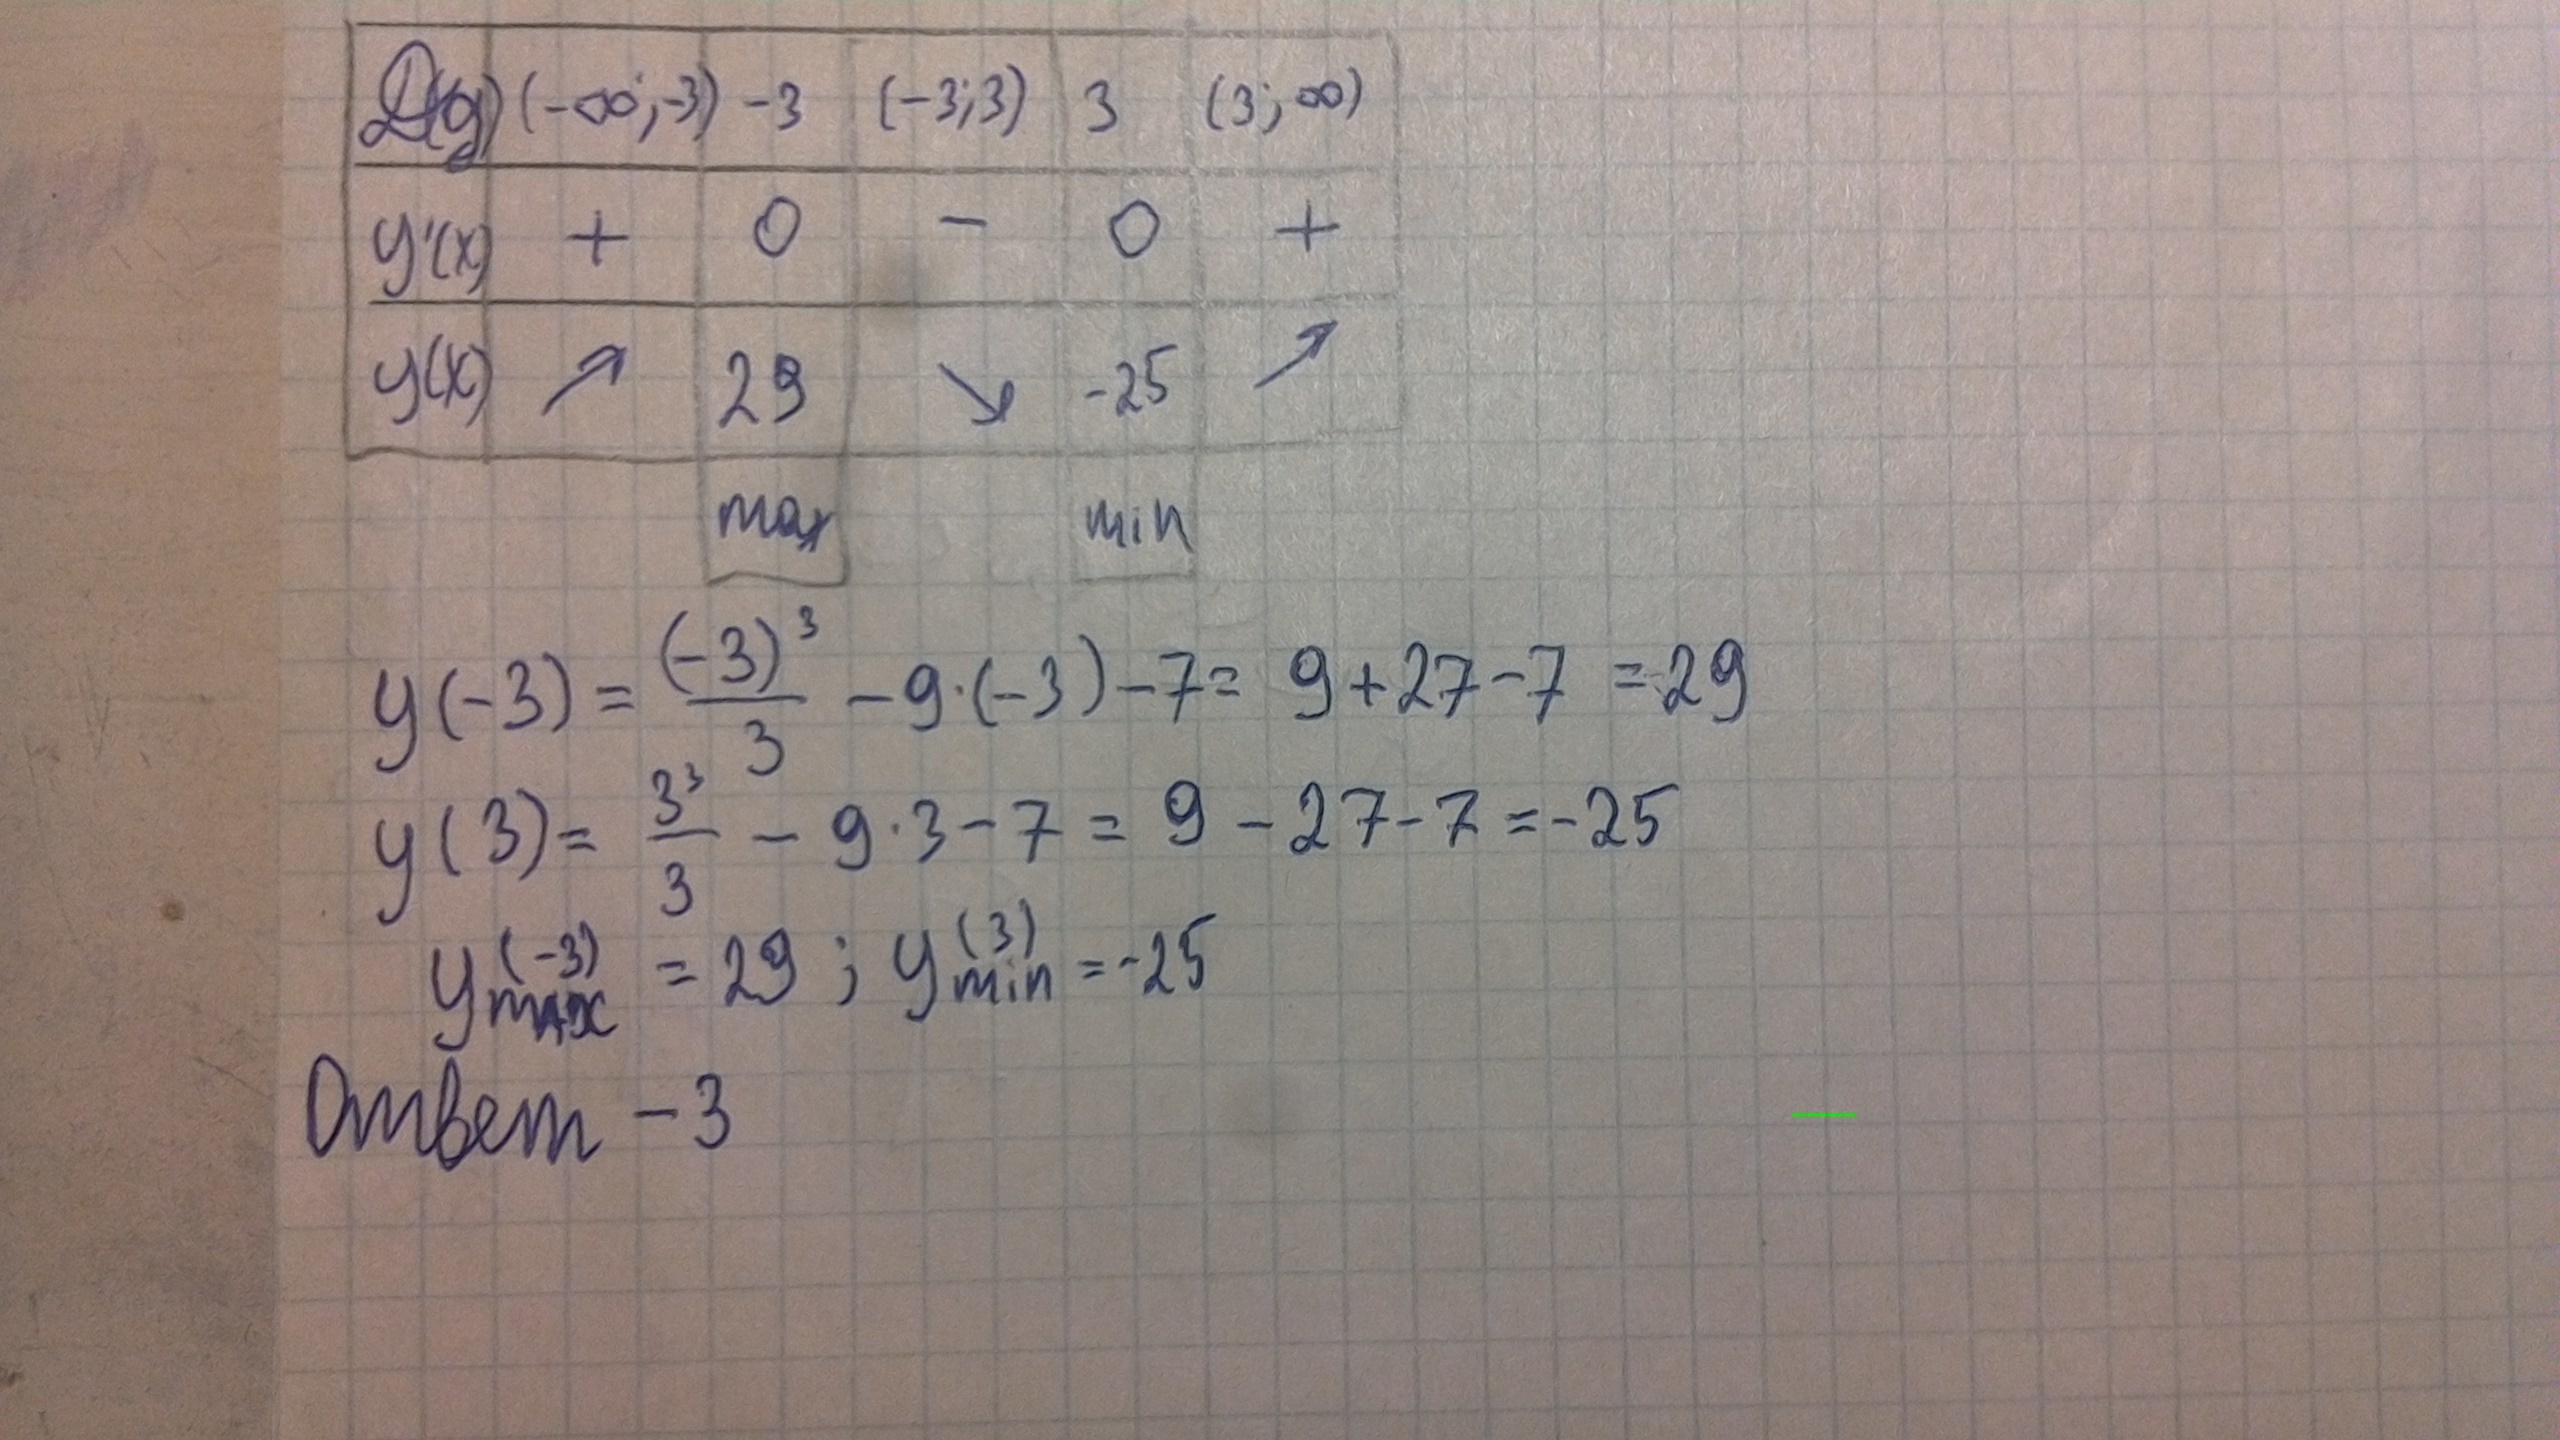 D(y) (-∞; -3) -3 (-3; 3) 3 (3; ∞)
y'(x) + 0 - 0 +
y(x) ↗ 29 ↘ -25 ↗
max min
y(-3) = (-3)³/3 - 9·(-3) - 7 = 9 + 27 - 7 = 29
y(3) = 3³/3 - 9·3 - 7 = 9 - 27 - 7 = -25
y max (-3) = 29 ; y min (3) = -25
Ответ -3